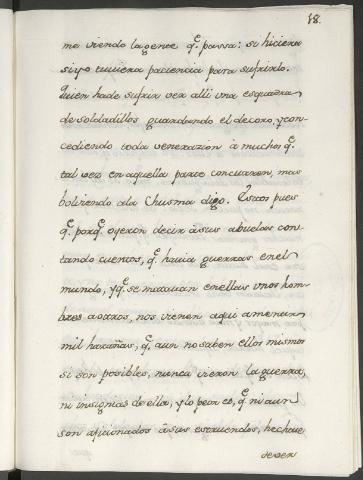 18.
me viendo la gente q.^e passa: si hiciera
si yo tuuiera paciencia para sufrirlo.
Quien hade sufrir ver alli vna esquadra
de soldadillos guardando el decoro, y con-
cediendo toda veneracion à muchos q.^e
tal vez en aquella parte concurren, mas
bolviendo ala chusma digo. Estos pues
q.^e porq.^e oyeron decir àsus abuelas con-
tando cuentos, q.^e hauia guerras enel
mundo, y q.^e se matauan enellas vnos hom-
bres aotros, nos vienen aqui amenar
mil hazañas, q.^e aun no saben ellos mismos
si son posibles, nunca vieron la guerra,
ni insignias de ella, y lo peor es, q.^e ni aun
son aficionados àsus estruendos, hechase
de ver